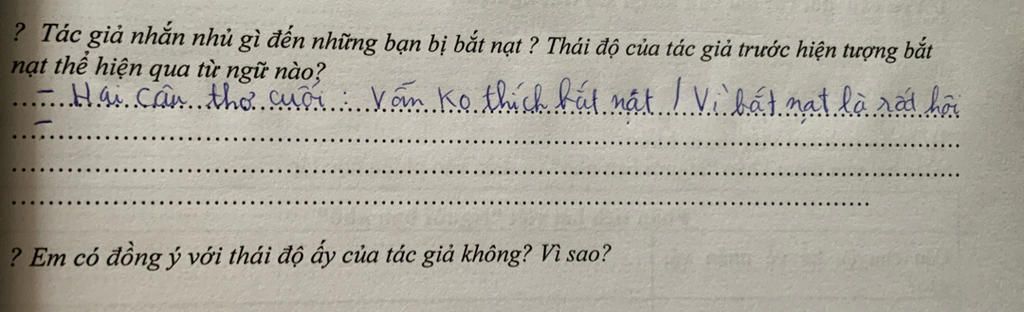 ? Tác giả nhắn nhủ gì đến những bạn bị bắt nạt ? Thái độ của tác giả trước hiện tượng bắt
nạt thể hiện qua từ ngữ nào?
- Hai câu thơ cuối : Vẫn ko thích bắt nạt / Vì bắt nạt là rất hôi
-
? Em có đồng ý với thái độ ấy của tác giả không? Vì sao?